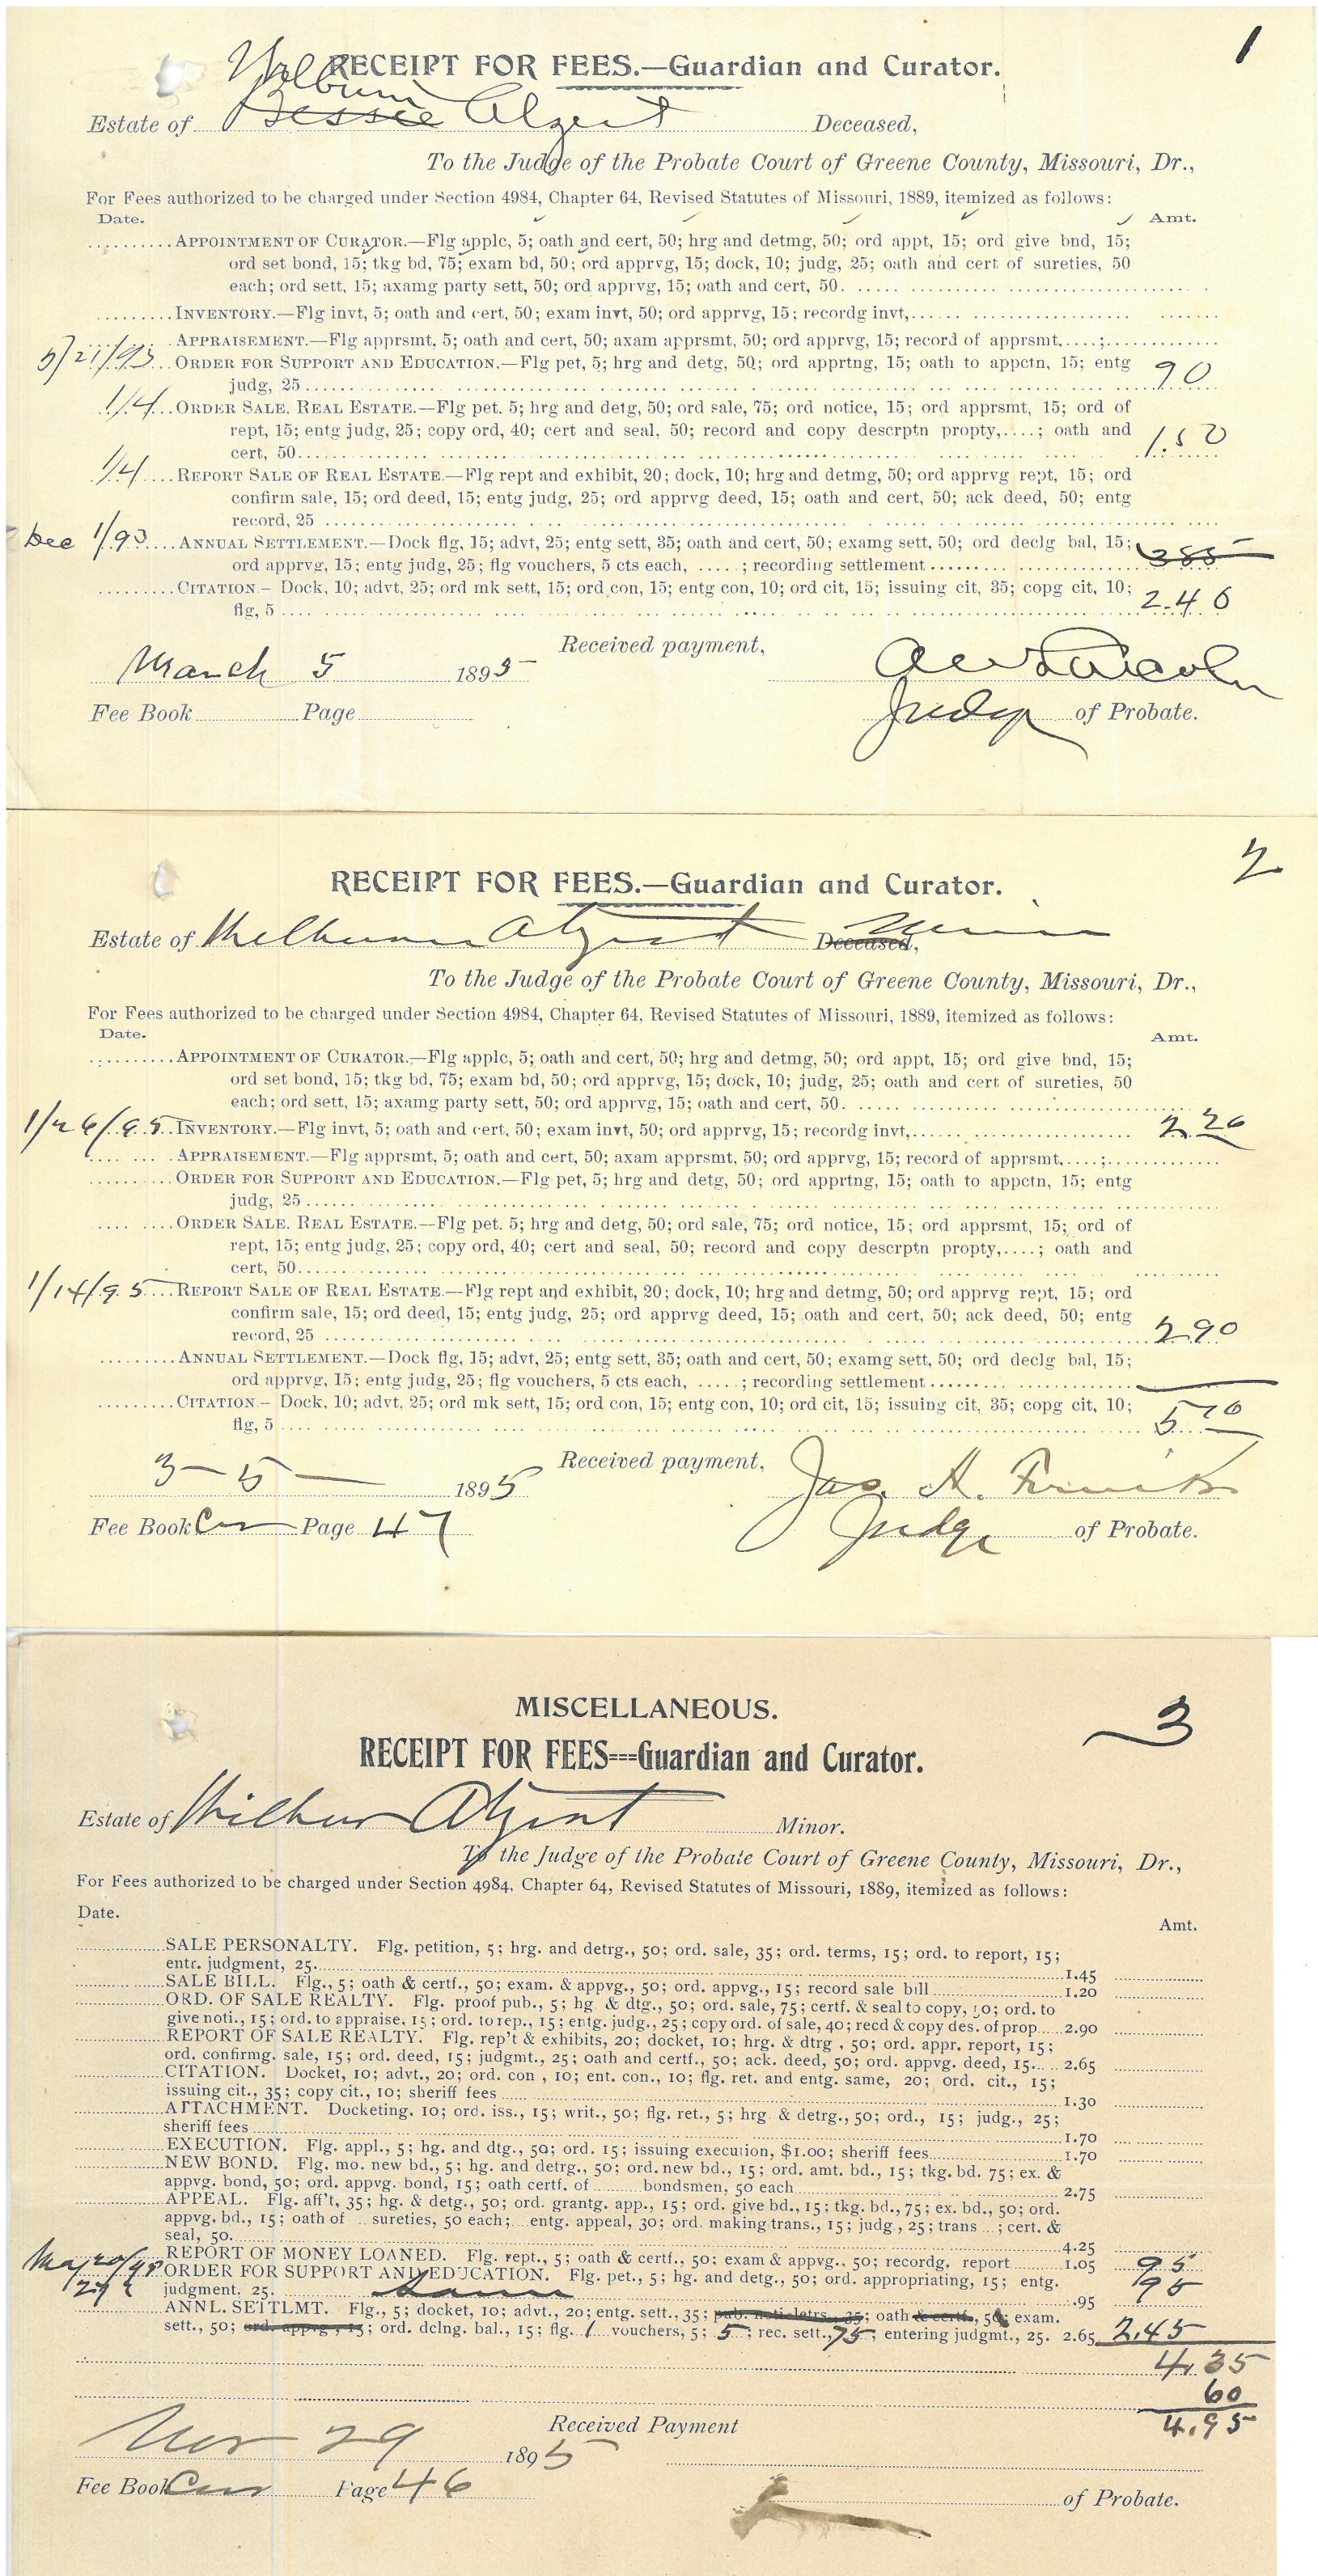 1
RECEIPT FOR FEES.—Guardian and Curator.
Wilbum
Estate of Bessie Alzent Deceased,
To the Judge of the Probate Court of Greene County, Missouri, Dr.,
For Fees authorized to be charged under Section 4984, Chapter 64, Revised Statutes of Missouri, 1889, itemized as follows:
Date. Amt.
APPOINTMENT OF CURATOR.—Flg applc, 5; oath and cert, 50; hrg and detmg, 50; ord appt, 15; ord give bnd, 15;
ord set bond, 15; tkg bd, 75; exam bd, 50; ord apprvg, 15; dock, 10; judg, 25; oath and cert of sureties, 50
each; ord sett, 15; axamg party sett, 50; ord apprvg, 15; oath and cert, 50.
INVENTORY.—Flg invt, 5; oath and cert, 50; exam invt, 50; ord apprvg, 15; recordg invt,
APPRAISEMENT.—Flg apprsmt, 5; oath and cert, 50; axam apprsmt, 50; ord apprvg, 15; record of apprsmt,....;
5/21/93 ORDER FOR SUPPORT AND EDUCATION.—Flg pet, 5; hrg and detg, 50; ord apprtng, 15; oath to appctn, 15; entg
judg, 25 90
1/4 ORDER SALE. REAL ESTATE.—Flg pet. 5; hrg and detg, 50; ord sale, 75; ord notice, 15; ord apprsmt, 15; ord of
rept, 15; entg judg, 25; copy ord, 40; cert and seal, 50; record and copy descrptn propty,....; oath and
cert, 50 1.50
1/4 REPORT SALE OF REAL ESTATE.—Flg rept and exhibit, 20; dock, 10; hrg and detmg, 50; ord apprvg rept, 15; ord
confirm sale, 15; ord deed, 15; entg judg, 25; ord apprvg deed, 15; oath and cert, 50; ack deed, 50; entg
record, 25
Dec 1/93 ANNUAL SETTLEMENT.—Dock flg, 15; advt, 25; entg sett, 35; oath and cert, 50; examg sett, 50; ord declg bal, 15;
ord apprvg, 15; entg judg, 25; flg vouchers, 5 cts each, ..... ; recording settlement 385
CITATION.— Dock, 10; advt, 25; ord mk sett, 15; ord con, 15; entg con, 10; ord cit, 15; issuing cit, 35; copg cit, 10;
flg, 5 2.40
Received payment,
March 5 1895
Fee Book Page Judge of Probate.
2
RECEIPT FOR FEES.—Guardian and Curator.
Estate of Wilburn Alzent Deceased, Minor
To the Judge of the Probate Court of Greene County, Missouri, Dr.,
For Fees authorized to be charged under Section 4984, Chapter 64, Revised Statutes of Missouri, 1889, itemized as follows:
Date. Amt.
APPOINTMENT OF CURATOR.—Flg applc, 5; oath and cert, 50; hrg and detmg, 50; ord appt, 15; ord give bnd, 15;
ord set bond, 15; tkg bd, 75; exam bd, 50; ord apprvg, 15; dock, 10; judg, 25; oath and cert of sureties, 50
each; ord sett, 15; axamg party sett, 50; ord apprvg, 15; oath and cert, 50.
1/26/95 INVENTORY.—Flg invt, 5; oath and cert, 50; exam invt, 50; ord apprvg, 15; recordg invt, 2 20
APPRAISEMENT.—Flg apprsmt, 5; oath and cert, 50; axam apprsmt, 50; ord apprvg, 15; record of apprsmt,....;
ORDER FOR SUPPORT AND EDUCATION.—Flg pet, 5; hrg and detg, 50; ord apprtng, 15; oath to appctn, 15; entg
judg, 25
ORDER SALE. REAL ESTATE.—Flg pet. 5; hrg and detg, 50; ord sale, 75; ord notice, 15; ord apprsmt, 15; ord of
rept, 15; entg judg, 25; copy ord, 40; cert and seal, 50; record and copy descrptn propty,....; oath and
cert, 50
1/14/95 REPORT SALE OF REAL ESTATE.—Flg rept and exhibit, 20; dock, 10; hrg and detmg, 50; ord apprvg rept, 15; ord
confirm sale, 15; ord deed, 15; entg judg, 25; ord apprvg deed, 15; oath and cert, 50; ack deed, 50; entg
record, 25 2 90
ANNUAL SETTLEMENT.—Dock flg, 15; advt, 25; entg sett, 35; oath and cert, 50; examg sett, 50; ord declg bal, 15;
ord apprvg, 15; entg judg, 25; flg vouchers, 5 cts each, ..... ; recording settlement
CITATION.— Dock, 10; advt, 25; ord mk sett, 15; ord con, 15; entg con, 10; ord cit, 15; issuing cit, 35; copg cit, 10;
flg, 5 5 10
Received payment, Jas. H.
3 - 5 - 1895
Fee Book Cur Page 47 Judge of Probate.
MISCELLANEOUS.
3
RECEIPT FOR FEES---Guardian and Curator.
Estate of Wilbur Alzent Minor.
To the Judge of the Probate Court of Greene County, Missouri, Dr.,
For Fees authorized to be charged under Section 4984, Chapter 64, Revised Statutes of Missouri, 1889, itemized as follows:
Date.
Amt.
SALE PERSONALTY. Flg. petition, 5; hrg. and detrg., 50; ord. sale, 35; ord. terms, 15; ord. to report, 15;
entr. judgment, 25. 1.45
SALE BILL. Flg., 5; oath & certf., 50; exam. & appvg., 50; ord. appvg., 15; record sale bill 1.20
ORD. OF SALE REALTY. Flg. proof pub., 5; hg. & dtg., 50; ord. sale, 75; certf. & seal to copy, 10; ord. to
give noti., 15; ord. to appraise, 15; ord. to rep., 15; entg. judg., 25; copy ord. of sale, 40; recd & copy des. of prop 2.90
REPORT OF SALE REALTY. Flg. rep't & exhibits, 20; docket, 10; hrg. & dtrg , 50; ord. appr. report, 15;
ord. confirmg. sale, 15; ord. deed, 15; judgmt., 25; oath and certf., 50; ack. deed, 50; ord. appvg. deed, 15 2.65
CITATION. Docket, 10; advt., 20; ord. con , 10; ent. con., 10; flg. ret. and entg. same, 20; ord. cit., 15;
issuing cit., 35; copy cit., 10; sheriff fees 1.30
ATTACHMENT. Docketing. 10; ord. iss., 15; writ., 50; flg. ret., 5; hrg. & detrg., 50; ord., 15; judg., 25;
sheriff fees 1.70
EXECUTION. Flg. appl., 5; hg. and dtg., 50; ord. 15; issuing execution, $1.00; sheriff fees 1.70
NEW BOND. Flg. mo. new bd., 5; hg. and detrg., 50; ord. new bd., 15; ord. amt. bd., 15; tkg. bd. 75; ex. &
appvg. bond, 50; ord. appvg. bond, 15; oath certf. of ......... bondsmen, 50 each 2.75
APPEAL. Flg. aff't, 35; hg. & detg., 50; ord. grantg. app., 15; ord. give bd., 15; tkg. bd., 75; ex. bd., 50; ord.
appvg. bd., 15; oath of ... sureties, 50 each; entg. appeal, 30; ord. making trans., 15; judg., 25; trans ...; cert. &
seal, 50. 4.25
REPORT OF MONEY LOANED. Flg. rept., 5; oath & certf., 50; exam & appvg., 50; recordg. report 1.05 95
May 20/95 ORDER FOR SUPPORT AND EDUCATION. Flg. pet., 5; hg. and detg., 50; ord. appropriating, 15; entg.
judgment. 25. Same .95 95
ANNL. SETTLMT. Flg., 5; docket, 10; advt., 20; entg. sett., 35; pub. noti letrs., 35; oath & certf., 50; exam.
sett., 50; ord. appvg., 15; ord. dclng. bal., 15; flg. 1 vouchers, 5; 5; rec. sett., 75; entering judgmt., 25. 2.65 2.45
4.35
60
4.95
Received Payment
Nov 29 1895
Fee Book Cur Page 46 of Probate.